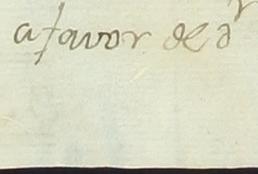 a favor de d